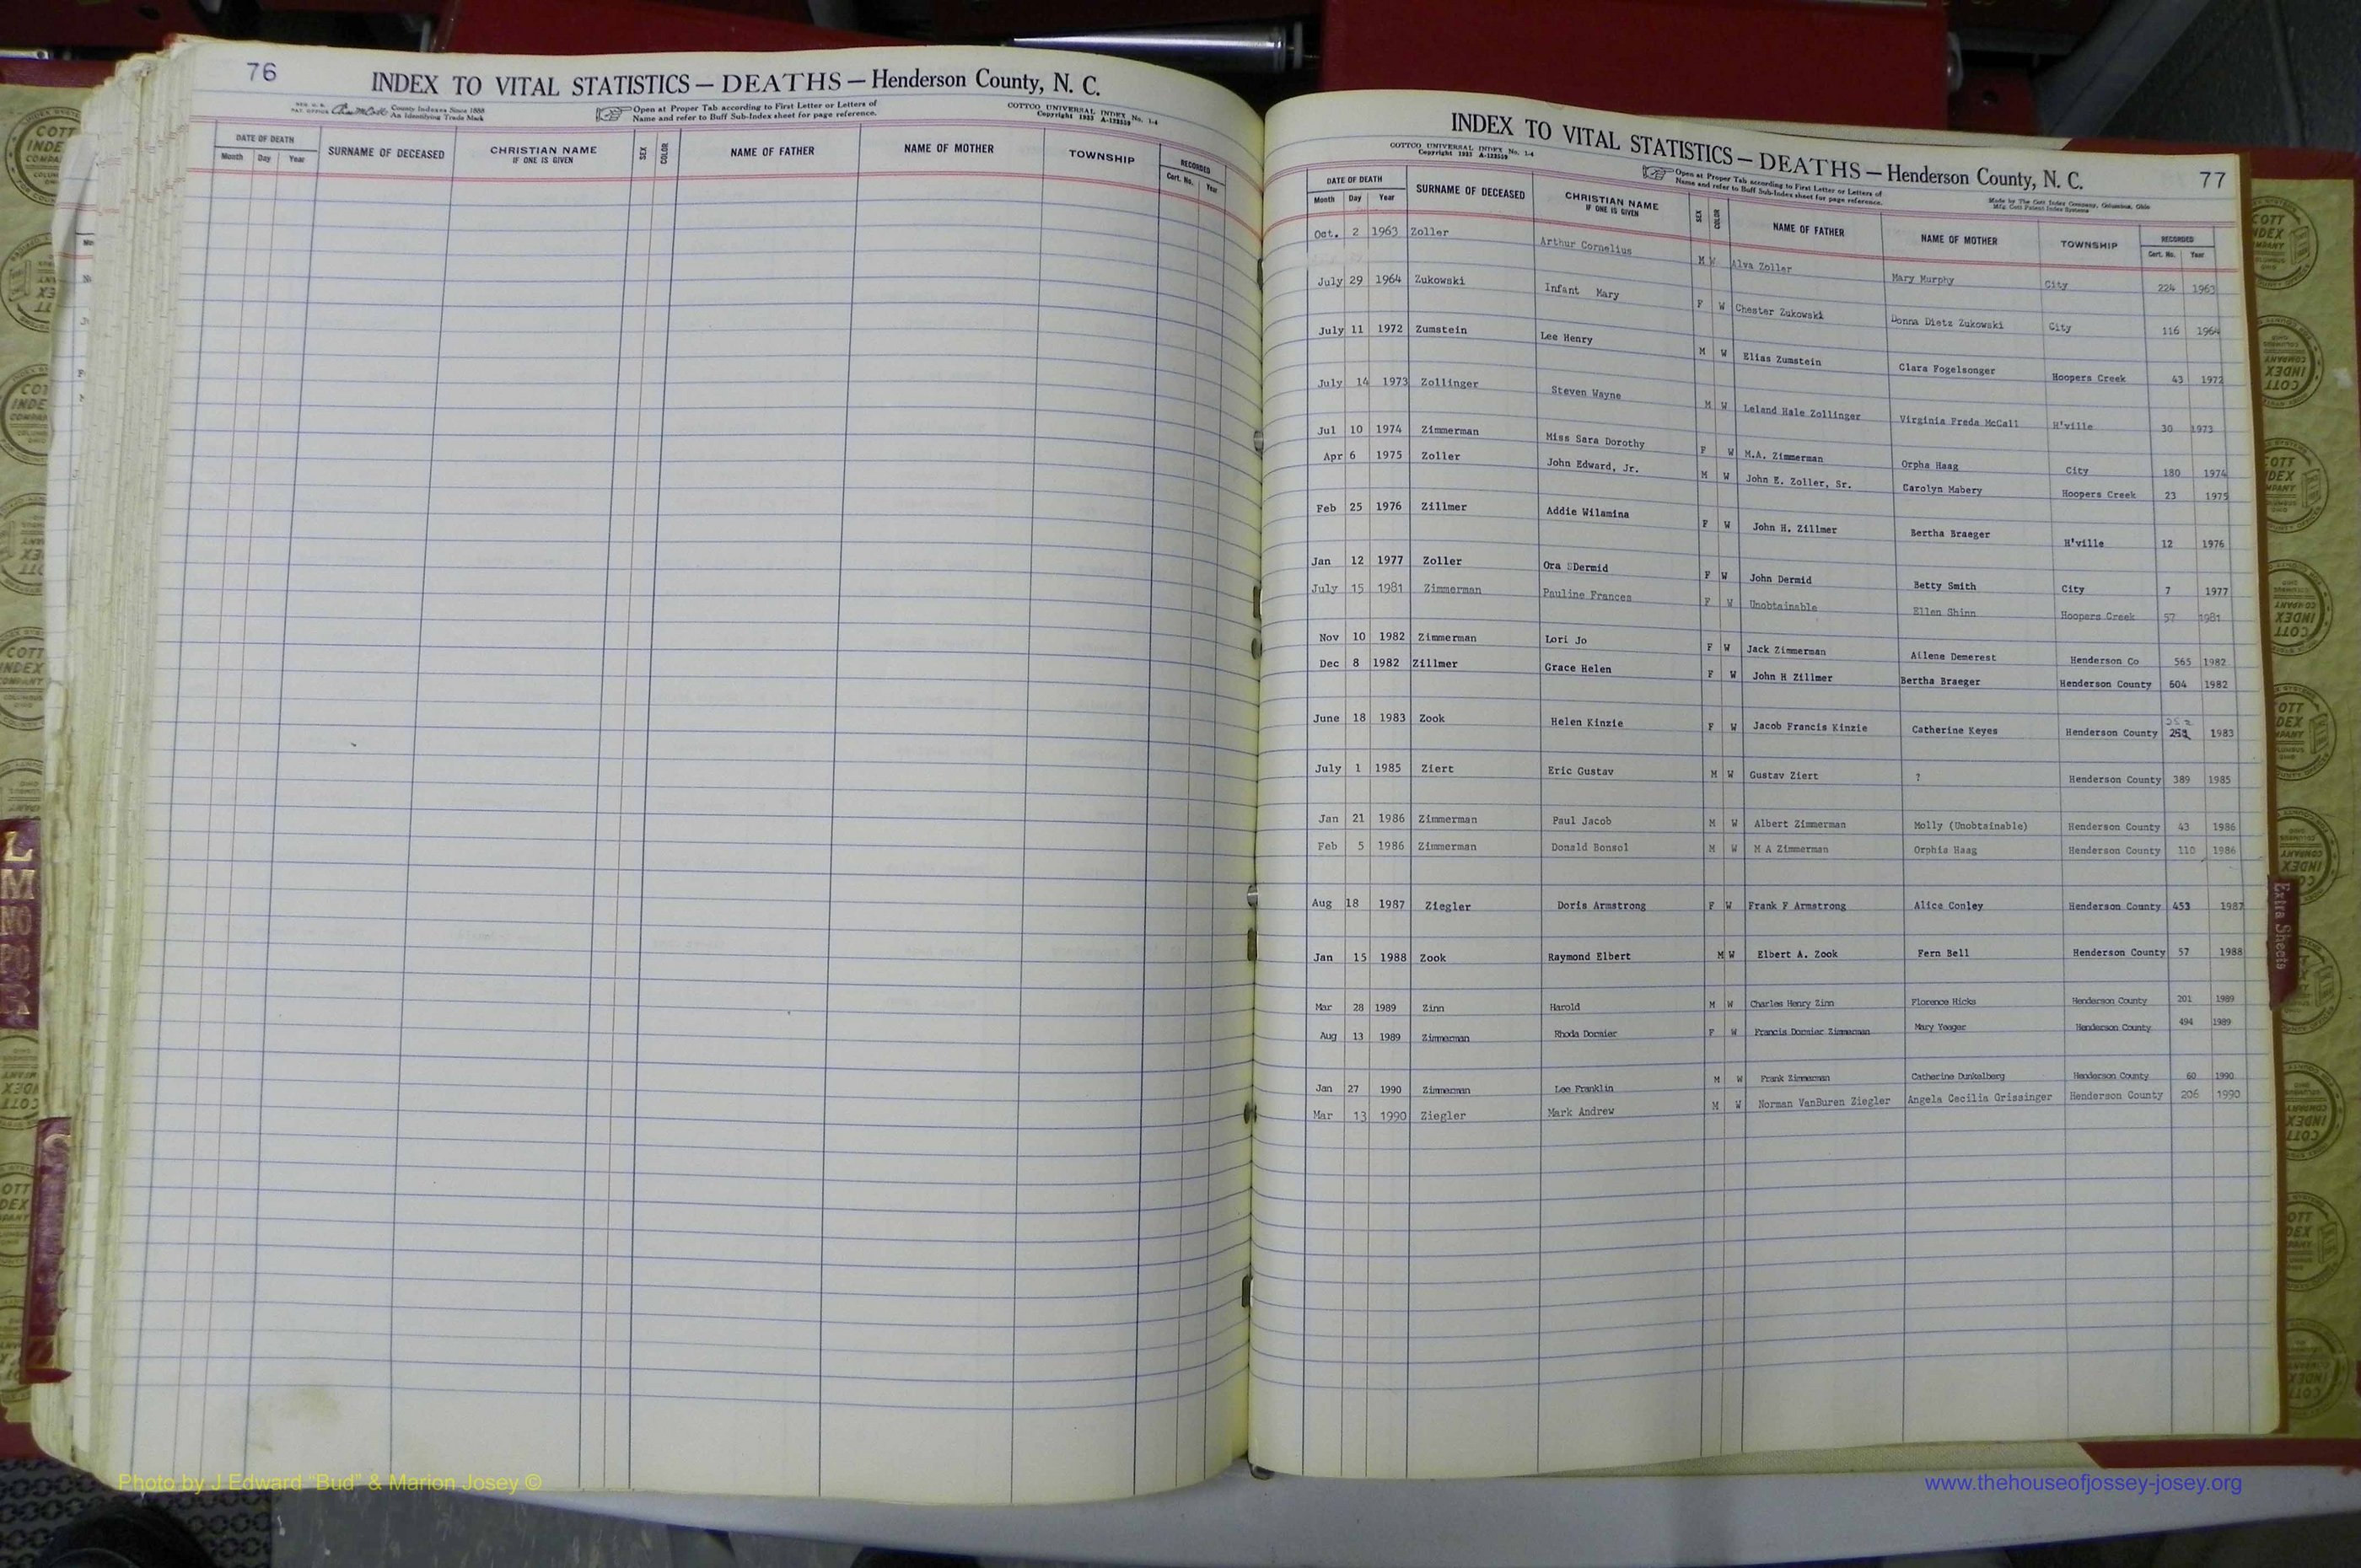 76
INDEX TO VITAL STATISTICS — DEATHS — Henderson County, N. C.
County Indexes Since 1888
An Identifying Trade Mark
Open at Proper Tab according to First Letter or Letters of
Name and refer to Buff Sub-Index sheet for page reference.
COTTCO UNIVERSAL INDEX No. 1-4
Copyright 1933 A-122559
DATE OF DEATH SURNAME OF DECEASED CHRISTIAN NAME SEX COLOR NAME OF FATHER NAME OF MOTHER TOWNSHIP RECORDED
Month Day Year IF ONE IS GIVEN Cert. No. Year
INDEX TO VITAL STATISTICS — DEATHS — Henderson County, N. C. 77
COTTCO UNIVERSAL INDEX No. 1-4
Copyright 1933 A-122559
Open at Proper Tab according to First Letter or Letters of
Name and refer to Buff Sub-Index sheet for page reference.
Made by The Cott Index Company, Columbus, Ohio
Mfg. Cott Patent Index Systems
DATE OF DEATH SURNAME OF DECEASED CHRISTIAN NAME SEX COLOR NAME OF FATHER NAME OF MOTHER TOWNSHIP RECORDED
Month Day Year IF ONE IS GIVEN Cert. No. Year
Oct. 2 1963 Zoller Arthur Cornelius M W Alva Zoller Mary Murphy City 224 1963
July 29 1964 Zukowski Infant Mary F W Chester Zukowski Donna Dietz Zukowski City 116 1964
July 11 1972 Zumstein Lee Henry M W Elias Zumstein Clara Fogelsonger Hoopers Creek 43 1972
July 14 1973 Zollinger Steven Wayne M W Leland Hale Zollinger Virginia Freda McCall H'ville 30 1973
Jul 10 1974 Zimmerman Miss Sara Dorothy F W M.A. Zimmerman Orpha Haag City 180 1974
Apr 6 1975 Zoller John Edward, Jr. M W John E. Zoller, Sr. Carolyn Mabery Hoopers Creek 23 1975
Feb 25 1976 Zillmer Addie Wilamina F W John H. Zillmer Bertha Braeger H'ville 12 1976
Jan 12 1977 Zoller Ora Dermid F W John Dermid Betty Smith City 7 1977
July 15 1981 Zimmerman Pauline Frances F W Unobtainable Ellen Shinn Hoopers Creek 57 1981
Nov 10 1982 Zimmerman Lori Jo F W Jack Zimmerman Ailene Demerest Henderson Co 565 1982
Dec 8 1982 Zillmer Grace Helen F W John H Zillmer Bertha Braeger Henderson County 604 1982
June 18 1983 Zook Helen Kinzie F W Jacob Francis Kinzie Catherine Keyes Henderson County 252 1983
July 1 1985 Ziert Eric Gustav M W Gustav Ziert ? Henderson County 389 1985
Jan 21 1986 Zimmerman Paul Jacob M W Albert Zimmerman Molly (Unobtainable) Henderson County 43 1986
Feb 5 1986 Zimmerman Donald Bonsol M W M A Zimmerman Orphia Haag Henderson County 110 1986
Aug 18 1987 Ziegler Doris Armstrong F W Frank F Armstrong Alice Conley Henderson County 453 1987
Jan 15 1988 Zook Raymond Elbert M W Elbert A. Zook Fern Bell Henderson County 57 1988
Mar 28 1989 Zinn Harold M W Charles Henry Zinn Florence Hicks Henderson County 201 1989
Aug 13 1989 Zimmerman Rhoda Dormier F W Francis Dormier Zimmerman Mary Yeager Henderson County 494 1989
Jan 27 1990 Zimmerman Lee Franklin M W Frank Zimmerman Catherine Dunkelberg Henderson County 60 1990
Mar 13 1990 Ziegler Mark Andrew M W Norman VanBuren Ziegler Angela Cecilia Grissinger Henderson County 206 1990
L
M
NO
Extra Sheets
Photo by J Edward “Bud” & Marion Josey ©
www.thehouseofjossey-josey.org